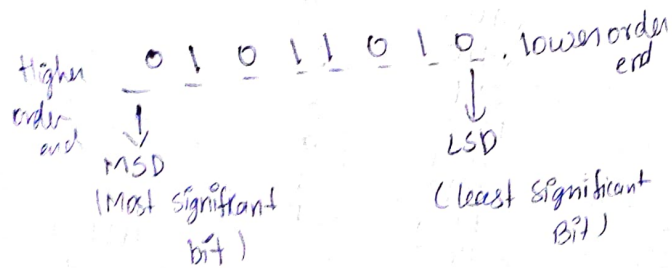 Higher order end 0 1 0 1 1 0 1 0 . lower order end
MSD LSD
(Most signifrant bit) (least significant Bit)